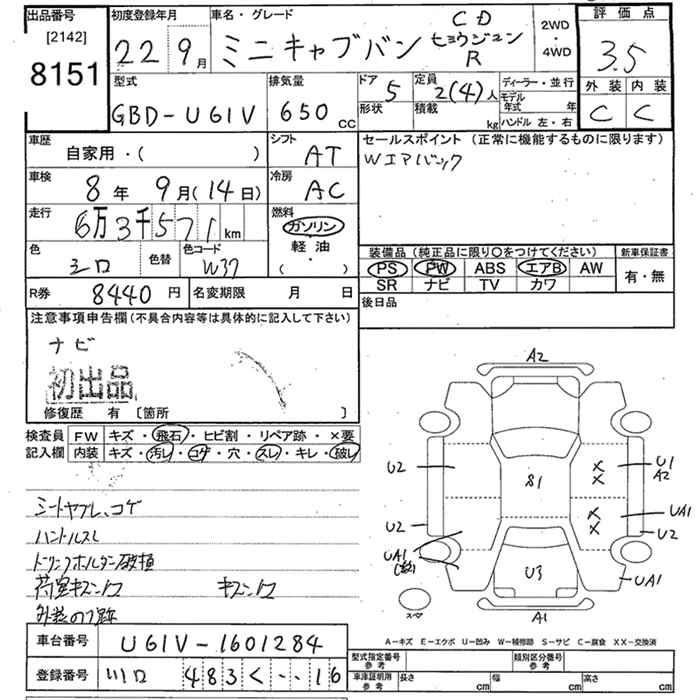 出品番号
[2142]
8151
初度登録年月
22 9月
車名・グレード
ミニキャブバン
CD
ヒョウジュン
R
2WD
・
4WD
評価点
3.5
外装 内装
C C
型式
GBD-U61V
排気量
650 CC
ドア
5
形状
定員
2(4)人
積載
kg
ディーラー・並行
モデル
年式 年
ハンドル 左・右
車歴
自家用・( )
シフト
AT
セールスポイント (正常に機能するものに限ります)
Wエアバック
車検
8年 9月(14日)
冷房
AC
走行
6万3千571km
燃料
ガソリン
軽油
( ・ )
色
シロ
色替
色コード
W37
装備品(純正品に限り○をつけてください)
PS PW ABS エアB AW
SR ナビ TV カワ
新車保証書
有・無
R券 8440円
名変期限 月 日
後日品
注意事項申告欄(不具合内容等は具体的に記入して下さい)
ナビ
初出品
修復歴 有 [箇所 ]
検査員
記入欄
FW キズ・飛石・ヒビ割・リペア跡・×要
内装 キズ・汚レ・コゲ・穴・スレ・キレ・破レ
シートヤブレ、コゲ
ハンドルスレ
ドリンクホルダー破損
荷室キズ
外装
A2
U2
S1
X
X
U1
A2
U2
X
X
UA1
U2
UA1
U3
UA1
A1
スペア
A-キズ E-エクボ U-凹み W-補修跡 S-サビ C-腐食 XX-交換済
車台番号 U61V-1601284
登録番号 川口 483 く ・・16
型式指定番号
参考
類別区分番号
参考
車庫証明用
参考
長さ cm
幅 cm
高さ cm